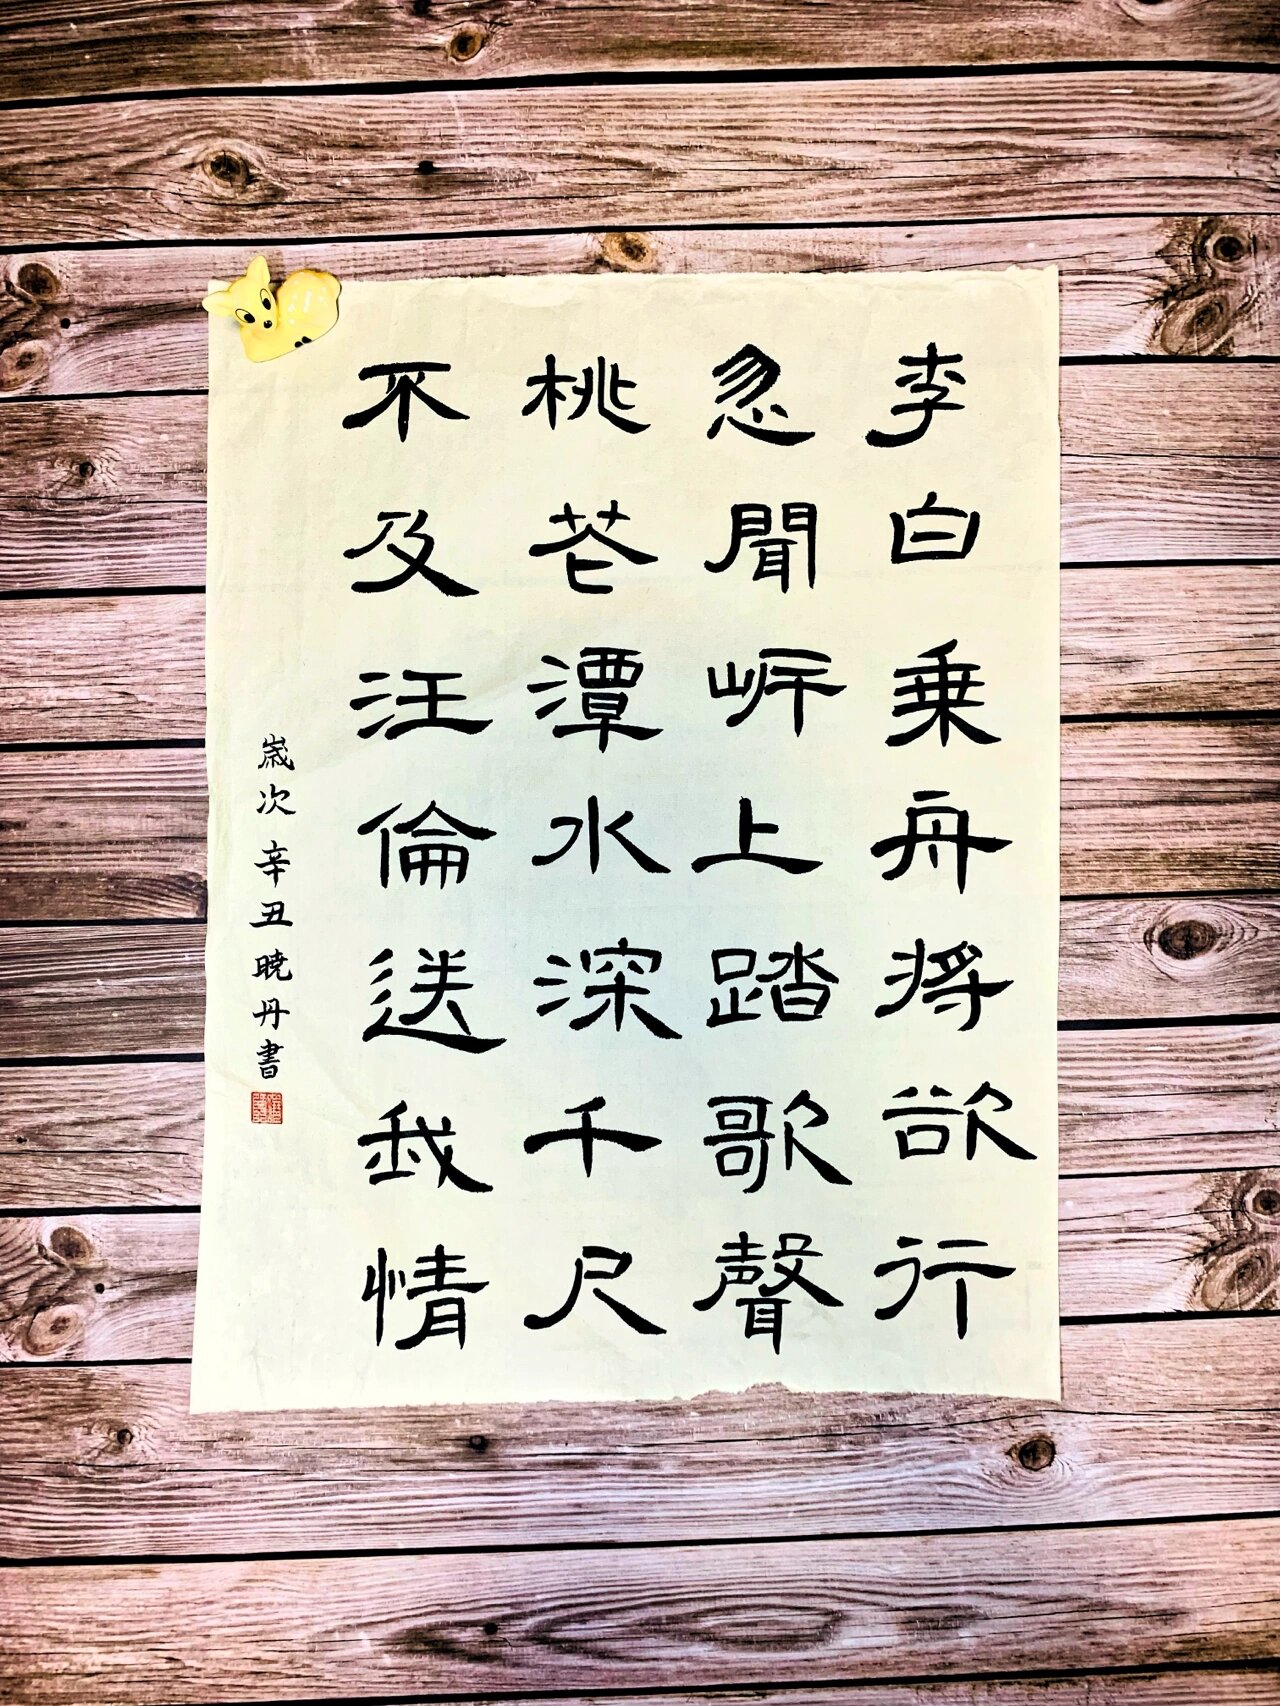 李白乗舟将欲行
忽聞岍上踏歌聲
桃花潭水深千尺
不及汪倫送我情
歲次辛丑曉丹書